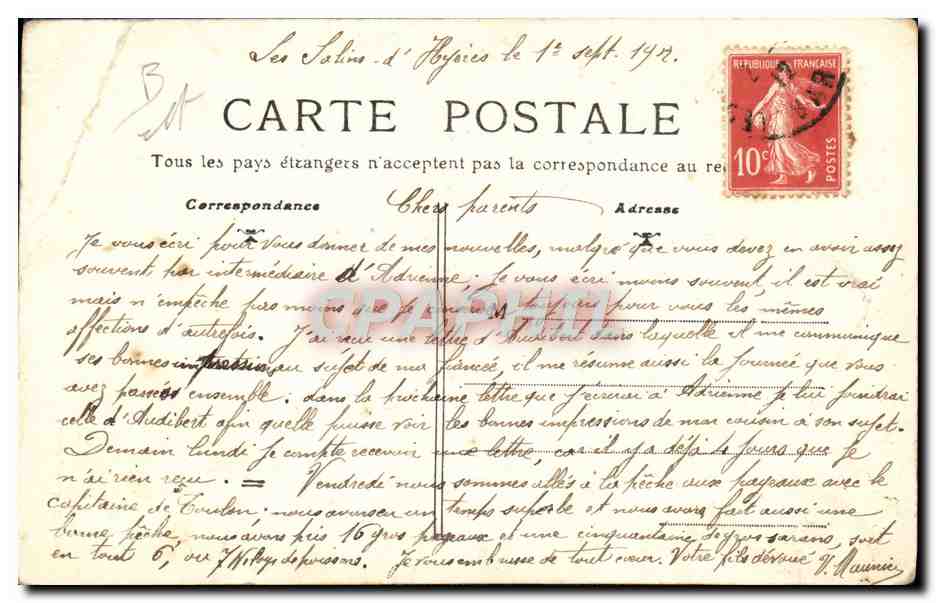 Les Salins-d'Hyères le 1e sept. 19
RÉPUBLIQUE FRANÇAISE
10c
POSTES
VAR
CARTE POSTALE
Tous les pays étrangers n'acceptent pas la correspondance au re
Correspondance
Adresse
Chers parents
Je vous écri pour vous donner de mes nouvelles, malgré que vous devez en avoir assez
souvent par intermédiaire d'Adrienne; Je vous écri moins souvent, il est vrai
mais n'empêche pas moins que je toujours pour vous les mêmes
affections d'autrefois. J'ai reçu une lettre d' dans laquelle il me communique
ses bonnes impressions au sujet de ma fiancée, il me résume aussi la journée que vous
avez passées ensemble. dans la prochaine lettre que j'écrirai à Adrienne je lui joindrai
celle d'Audibert afin quelle puisse voir les bonnes impressions de mon cousin à son sujet.
Demain lundi je compte recevoir une lettre, car il y a déjà 4 jours que je
n'ai rien reçu. = Vendredi nous sommes allés à la pêche aux pageaux avec le
capitaine de Toulon: nous avons eu un temps superbe et nous avons fait aussi une
bonne pêche, nous avons pris 16 gros pageaux et une cinquantaine de gros sarans, soit
en tout 6, ou 7 de poissons. Je vous embrasse de tout cœur. Votre fils dévoué
CPAPHIL
M